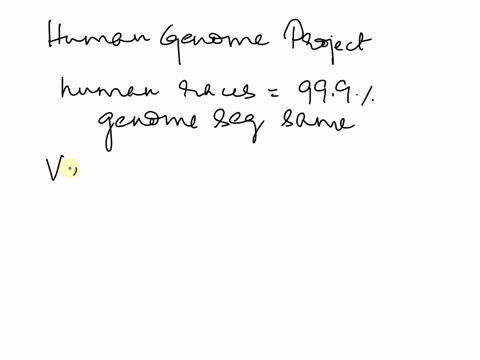 Human Genome Project
human races = 99.9%
genome seq same
V